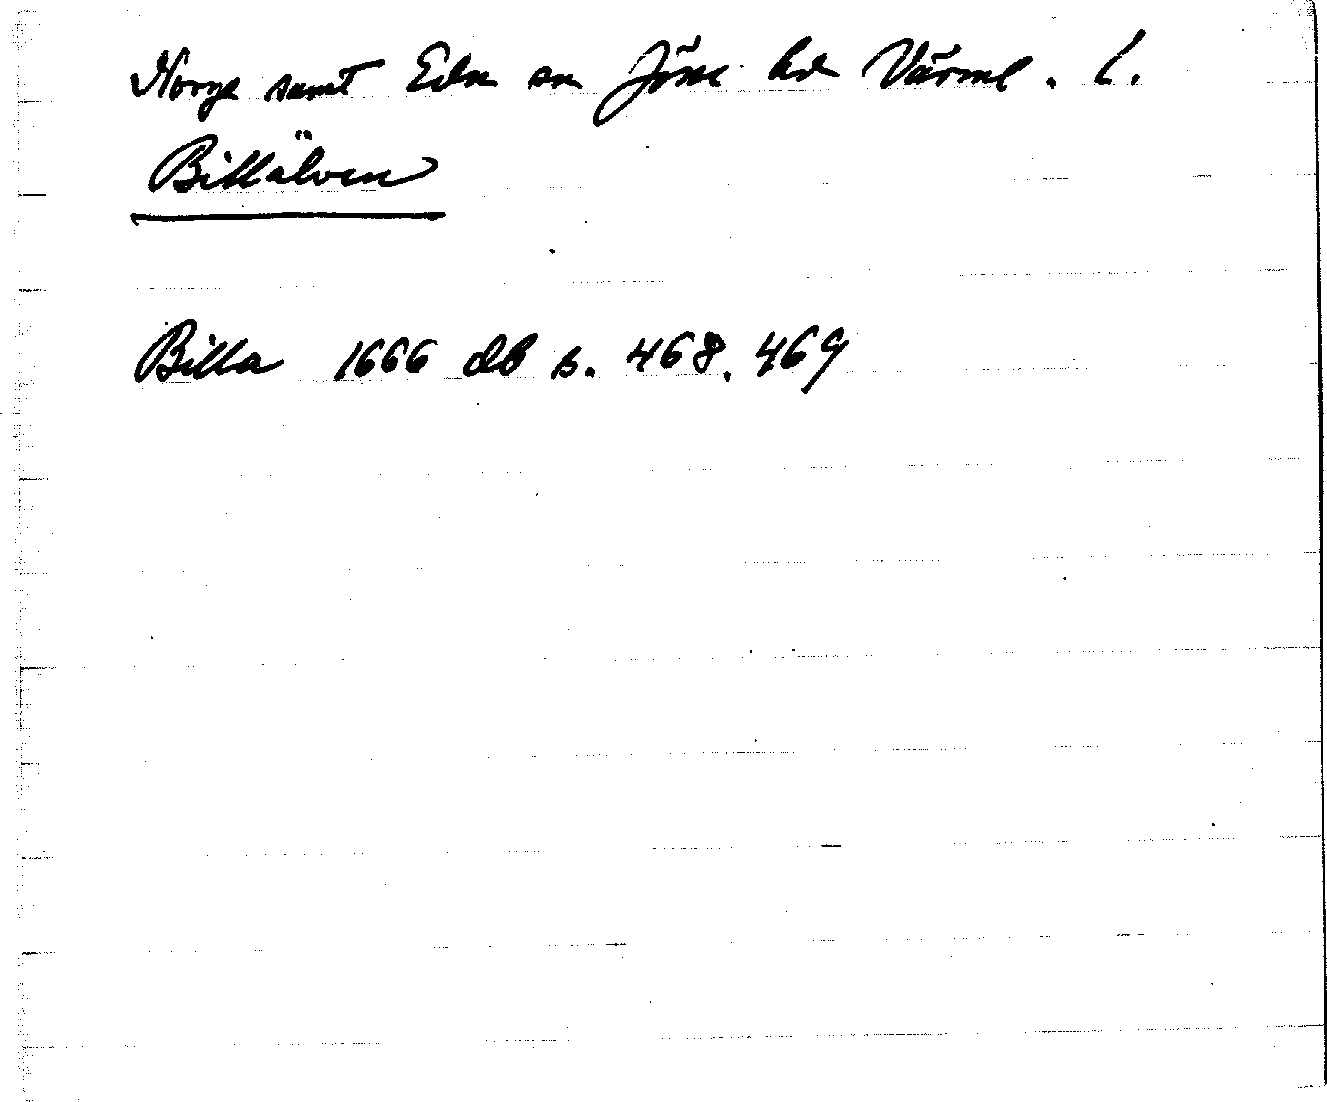 Norge samt Eda sn Jösse hd Värml. l.
Billälven
Billa 1666 db s. 468, 469